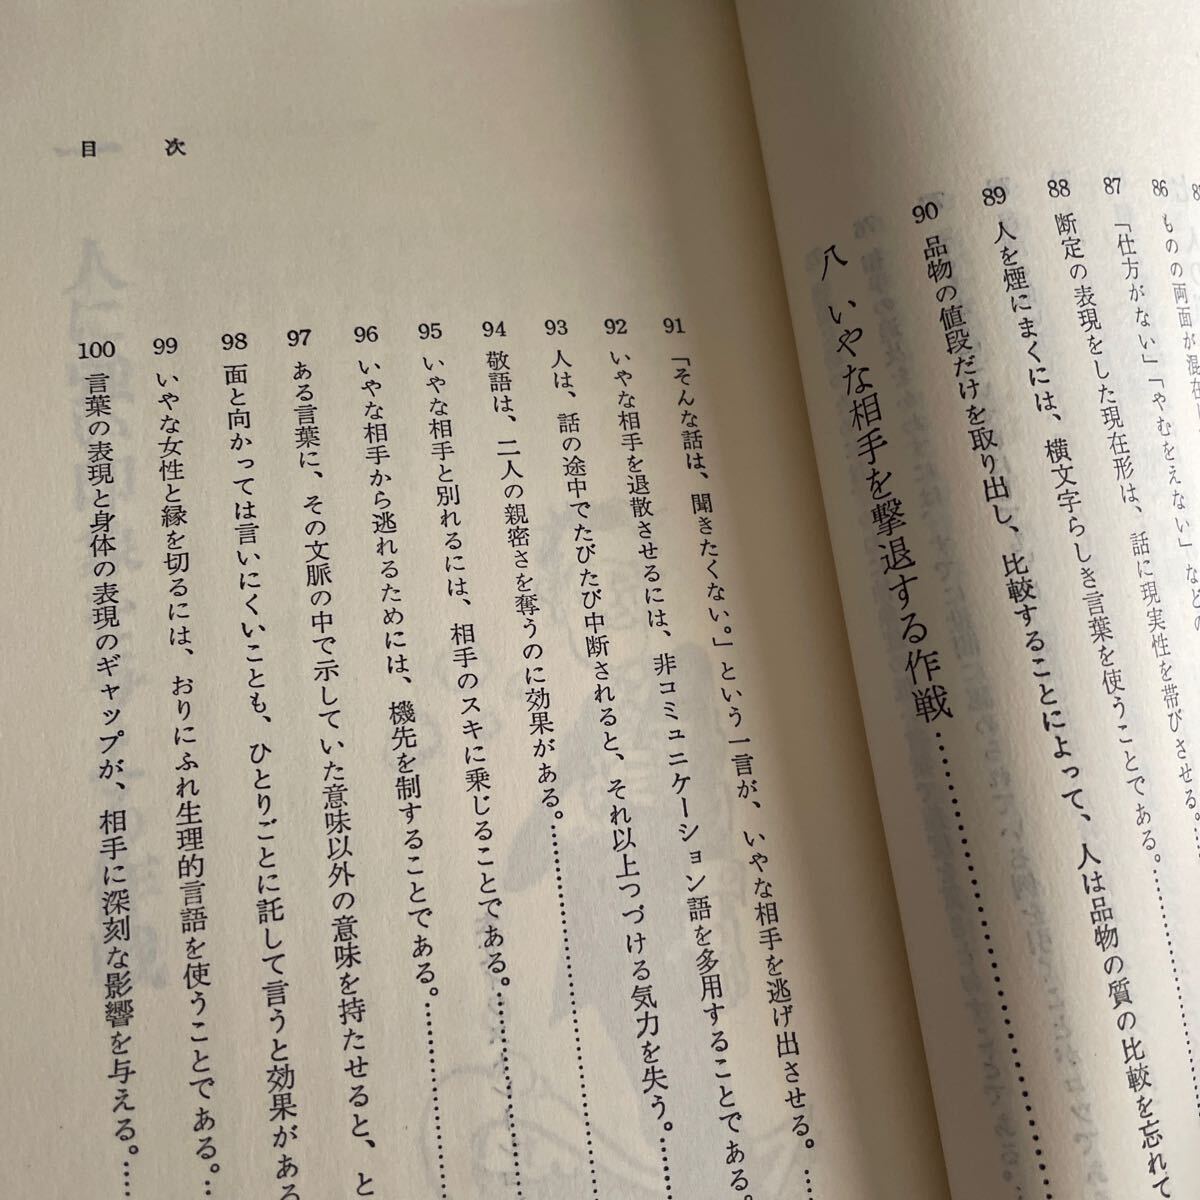 86 ものの両面が混在
「仕方がない」「やむをえない」などの
87 断定の表現をした現在形は、話に現実性を帯びさせる。
88 人を煙にまくには、横文字らしき言葉を使うことである。
89 品物の値段だけを取り出し、比較することによって、人は品物の質の比較を忘れて
90
八 いやな相手を撃退する作戦
91 「そんな話は、聞きたくない。」という一言が、いやな相手を逃げ出させる。
92 いやな相手を退散させるには、非コミュニケーション語を多用することである。
93 人は、話の途中でたびたび中断されると、それ以上つづける気力を失う。
94 敬語は、二人の親密さを奪うのに効果がある。
95 いやな相手と別れるには、相手のスキに乗じることである。
96 いやな相手から逃れるためには、機先を制することである。
97 ある言葉に、その文脈の中で示していた意味以外の意味を持たせると、と
98 面と向かっては言いにくいことも、ひとりごとに託して言うと効果がある
99 いやな女性と縁を切るには、おりにふれ生理的言語を使うことである。
100 言葉の表現と身体の表現のギャップが、相手に深刻な影響を与える。
目次